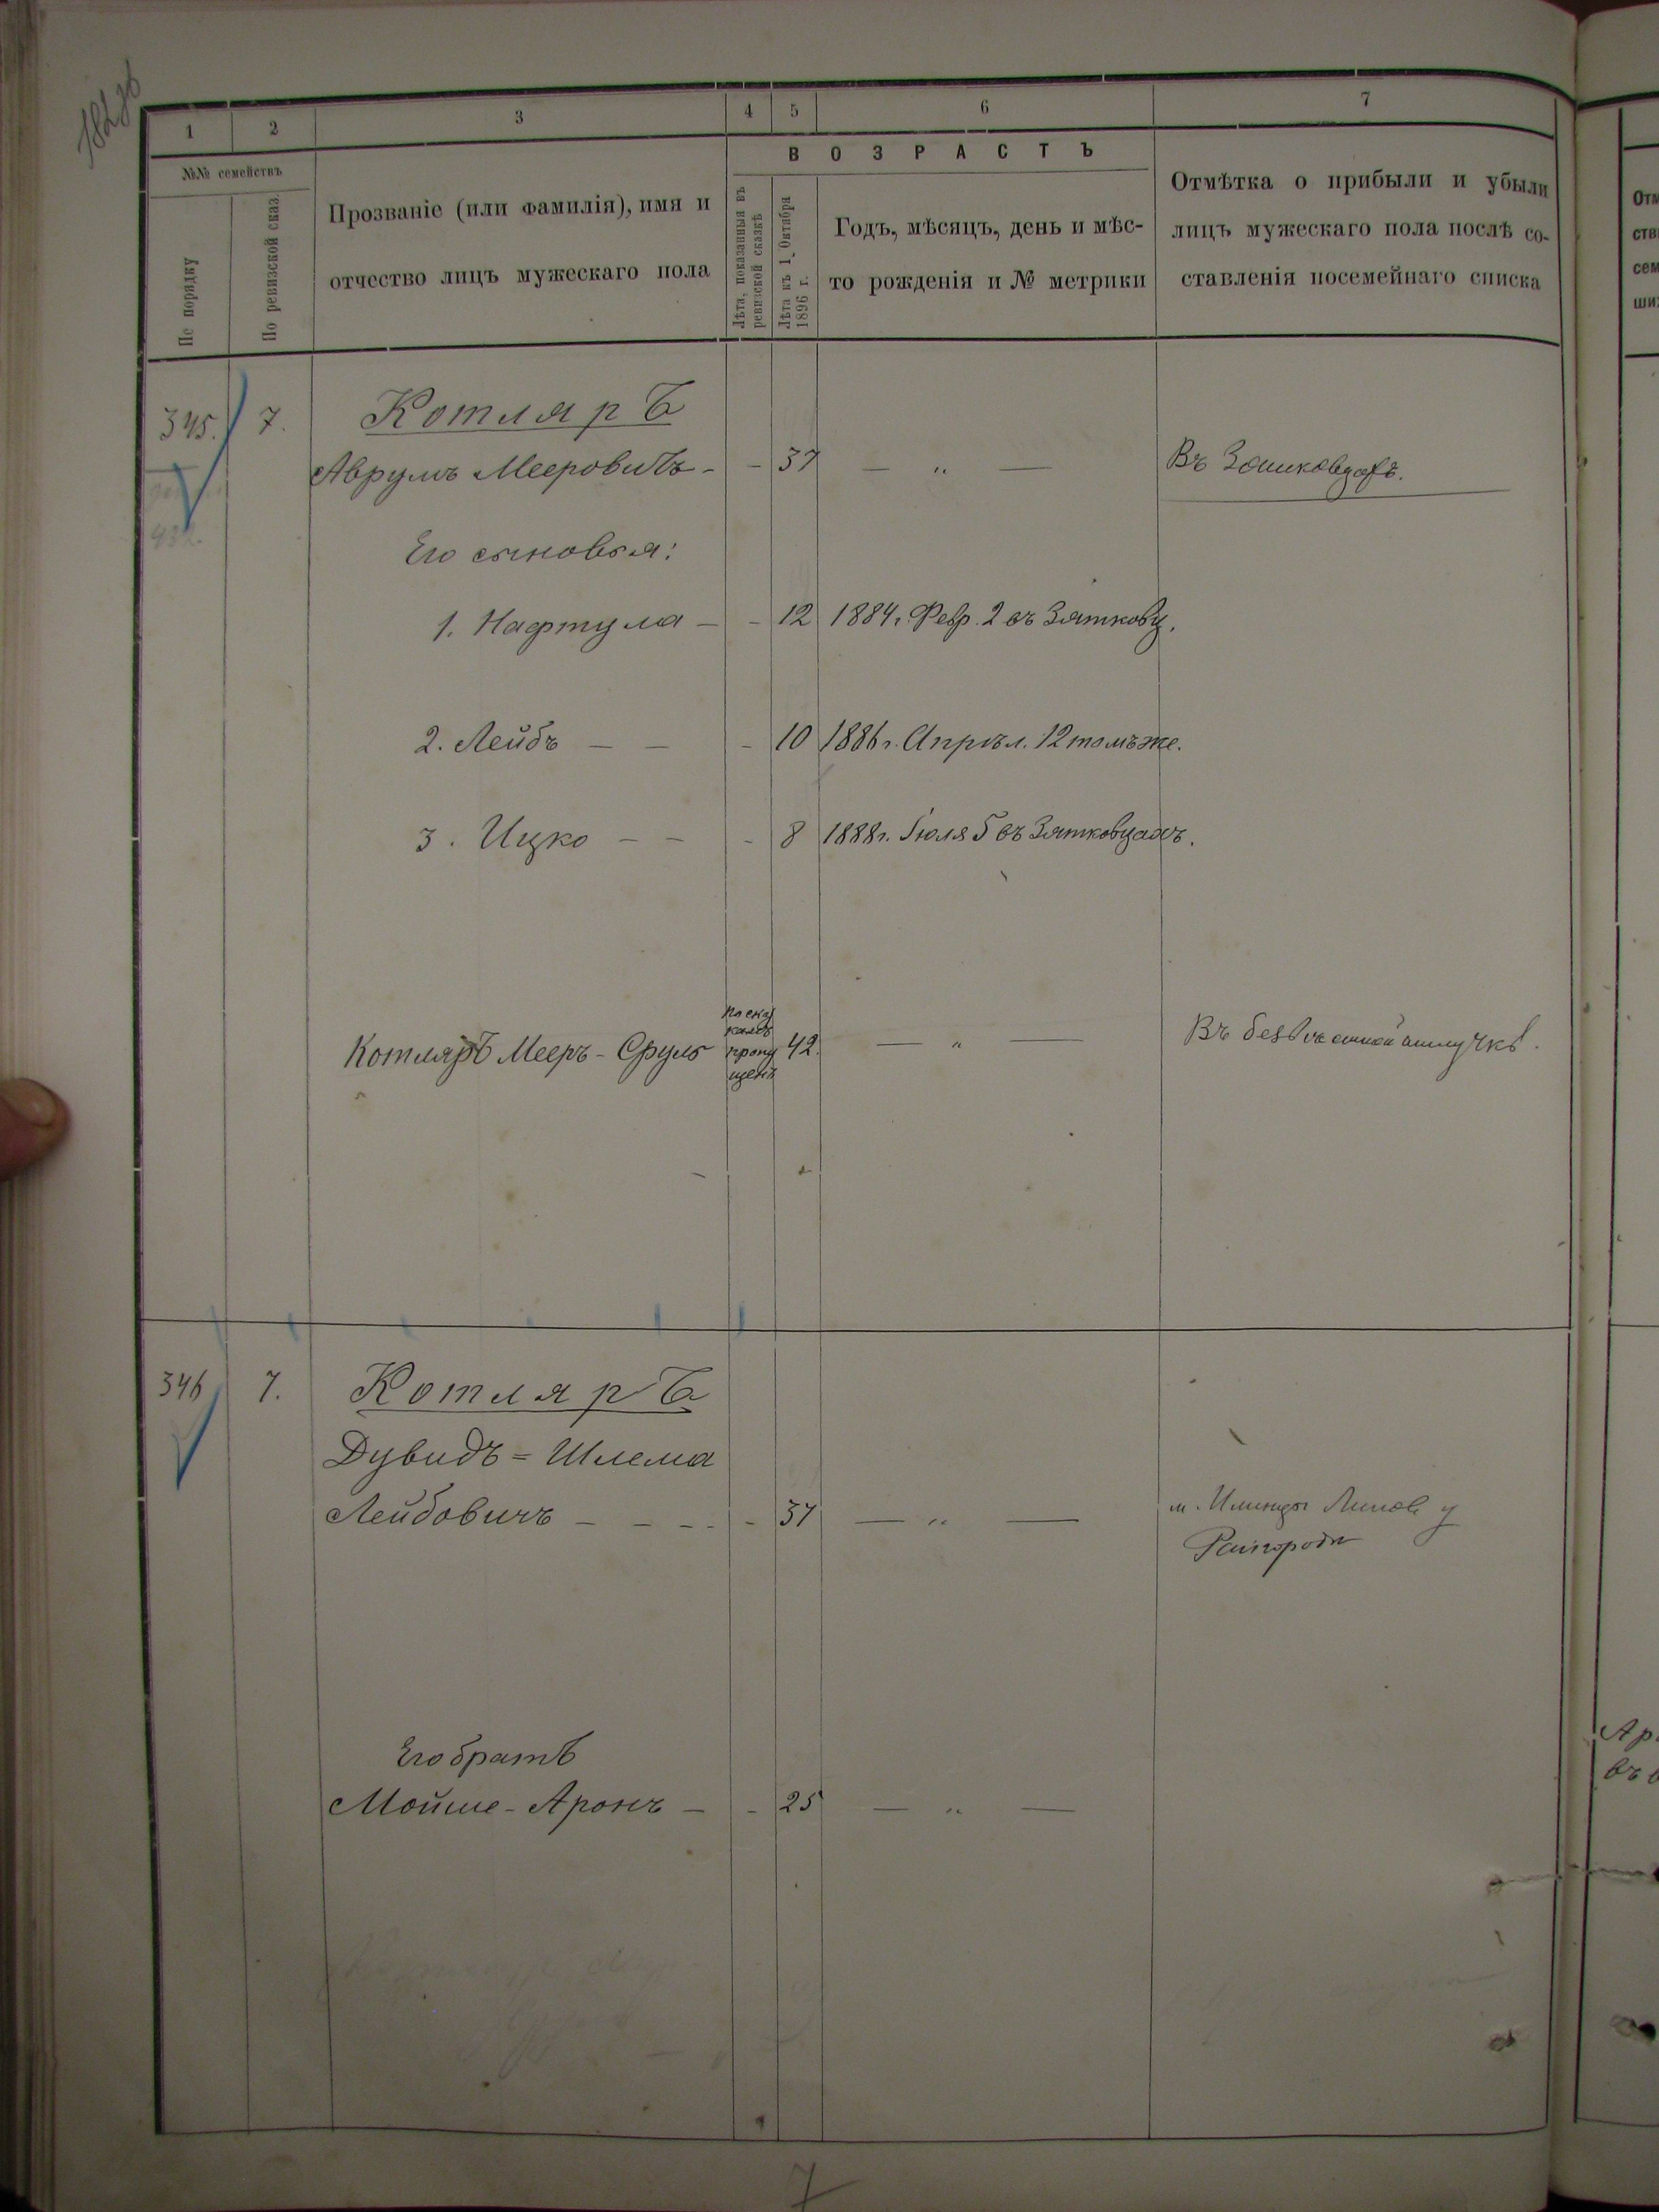 1 2 3 4 5 6 7
№№ семействъ
По порядку
По ревизской сказ.
Прозваніе (или фамилія), имя и
отчество лицъ мужескаго пола
ВОЗРАСТЪ
Лѣта, показанныя въ
ревизской сказкѣ
Лѣта къ 1 Октября
1896 г.
Годъ, мѣсяцъ, день и мѣс-
то рожденія и № метрики
Отмѣтка о прибыли и убыли
лицъ мужескаго пола послѣ со-
ставленія посемейнаго списка
345. 7. Котляръ
Аврумъ Мееровичъ - - 37 — „ — Въ
Его сыновья:
1. Нафтула — - 12 1884 г. Февр. 2 въ Зятковц.
2. Лейбъ — — - 10 1886 г. Апрѣл. 12 тамъ же.
3. Ицко — — - 8 1888 г. Іюля 5 въ Зятковцахъ.
Котляръ Мееръ-Сруль 42. — „ — Въ безвѣстной отлучкѣ.
пропу
щенъ
346 7. Котляръ
Дувидъ = Шлема
Лейбовичъ — — — - 37 — „ — м. Илинцы Липов. у
Его братъ
Мойше-Аронъ — - 25 — „ —
7